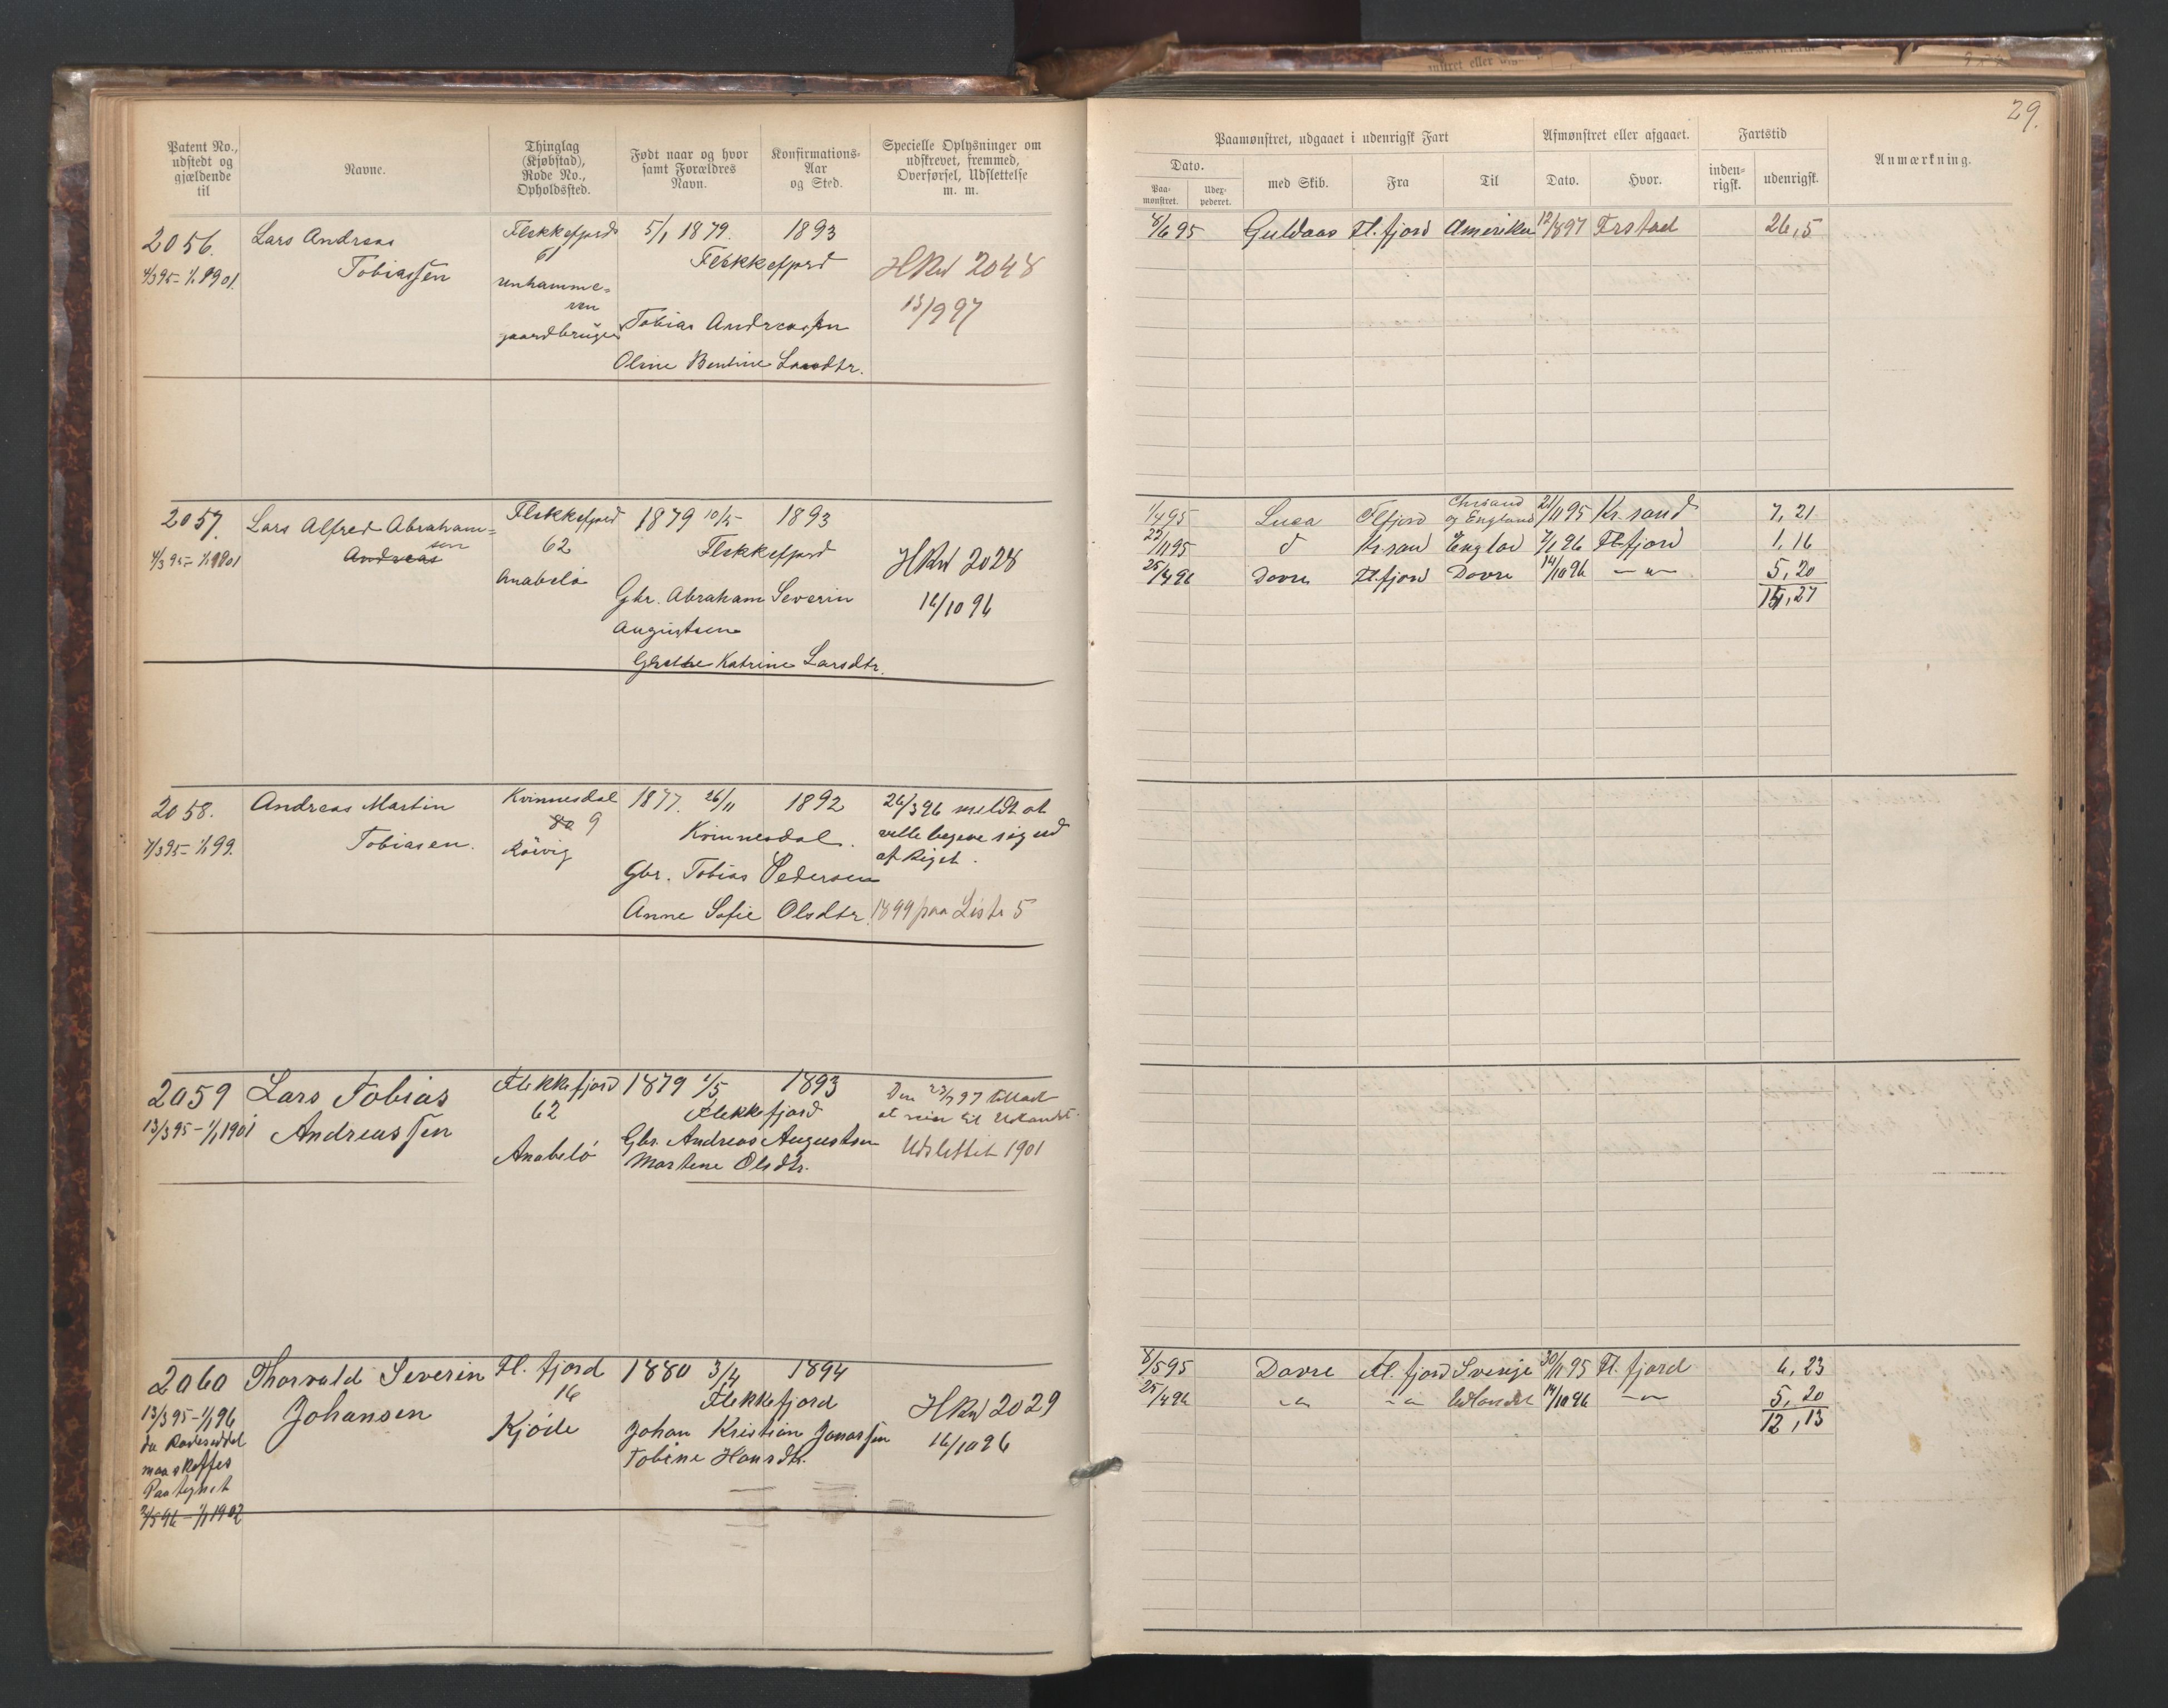 29.
Patent No., udstedt og gjældende til
Navne.
Thinglag (Kjøbstad), Rode No., Opholdssted.
Født naar og hvor samt Forældres Navn.
Konfirmations-Aar og Sted.
Specielle Oplysninger om udskrevet, fremmed, Overførsel, Udslettelse m. m.
Paamønstret, udgaaet i udenrigsk Fart
Dato.
Paa-mønstret.
Udex-pederet.
med Skib.
Fra
Til
Afmønstret eller afgaaet.
Dato.
Hvor.
Fartstid
inden-rigsk.
udenrigsk.
Anmærkning.
2056. Lars Andreas Flekkefjord 5/1 1879. 1893
Tobiassen 61 Flekkefjord
4/3 95 - 1/1 1901.
gaardbruger Tobias Andreassen
Oline Bentine
HRul 2048
13/9 97
8/6 95 Guldaas Fl. fjord Amerika 12/8 97 Frstad 26,5
2057. Lars Alfred Abraham= Flekkefjord 1879 10/5 1893
sen
Andreas 62 Flekkefjord
4/3 95 - 1/1 1901
Anabelö
Gbr. Abraham Severin
Augustsen
Katrine Larsdtr.
HRul 2028
16/10 96
1/4 95 Luca Flfjord Chrsand og England 21/11 95 Kr. sand 7,21
22/11 95 d Kr.sand 2/1 96 Fl.fjord 1,16
25/4 96 Dovre Fl.fjord Dovre 14/10 96 — " — 5,20
27
2058. Andreas Martin Kvinnesdal 1877. 26/11 1892
Tobiasen. 80 9 Kvinnesdal.
4/3 95 - 1/1 99. Rörvig
Gbr. Tobias Pedersen
Anne Sofie Olsdtr.
26/3 96 meldt at
ville begive sig ud
af Riget.
1899 paa Liste 5
2059 Lars Tobias Flekkefjord 1879 1/5 1893
Andreassen 62 Flekkefjord
13/3 95 - 1/1 1901
Anabelö
Gbr. Andreas Augustsen
Martene Olsdtr.
Den 23/7 97 tilladt
at reise til Udlandet.
Udslettet 1901
2060 Thorvald Severin Fl. fjord 1880 3/4 1894
Johansen 16 Flekkefjord
13/3 95 - 1/1 96
da Rodeseddel
maa skaffes
Paategnet
2/5 96 - 1/1 1902
Kjöde
Johan Kristian Jonassen
Tobine Hansdtr.
HRul 2029
16/10 96
8/5 95 Dovre Fl. fjord Sverige 30/11 95 Fl. fjord 6,23
25/4 96 — " — — " — Udlandet 14/10 96 — " — 5,20
12,13